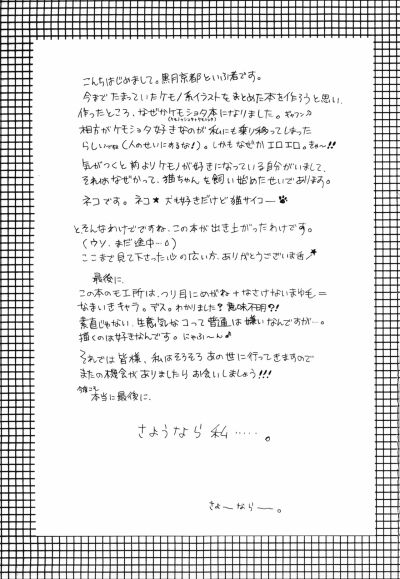 こんちはじめまして。黒月京都といふ者です。
今までたまっていたケモノ系イラストをまとめた本を作ろうと思い、
作ったところ、なぜかケモショタ本になりました。
相方がケモショタ好きなのが私にも乗り移ってしまった
らしい(人のせいにするな!)。しかもなぜかエロエロ。きゅ~!!
気がつくと前よりケモノが好きになっている自分がいまして、
それはなぜかって、猫ちゃんを飼い始めたせいであります。
ネコです。ネコ★ 犬も好きだけど猫サイコー
とそんなわけでですね、この本が出き上がったわけです。
(ウソ、まだ途中…。)
ここまで見て下さった心の広い方、ありがとうございます
最後に、
この本のモエ所は、つり目にめがね+なさけないまゆ毛=
なまいきキャラ。デス。わかりました?意味不明?!
素直じゃない、生意気なコって普通は嫌いなんですが…。
描くのは好きなんです。にゃふ~ん
それでは皆様、私はそろそろあの世に行ってきますので
またの機会がありましたらお会いしましょう!!!
今度こそ
本当に最後に、
さようなら 私‥‥‥。
さよーならー。